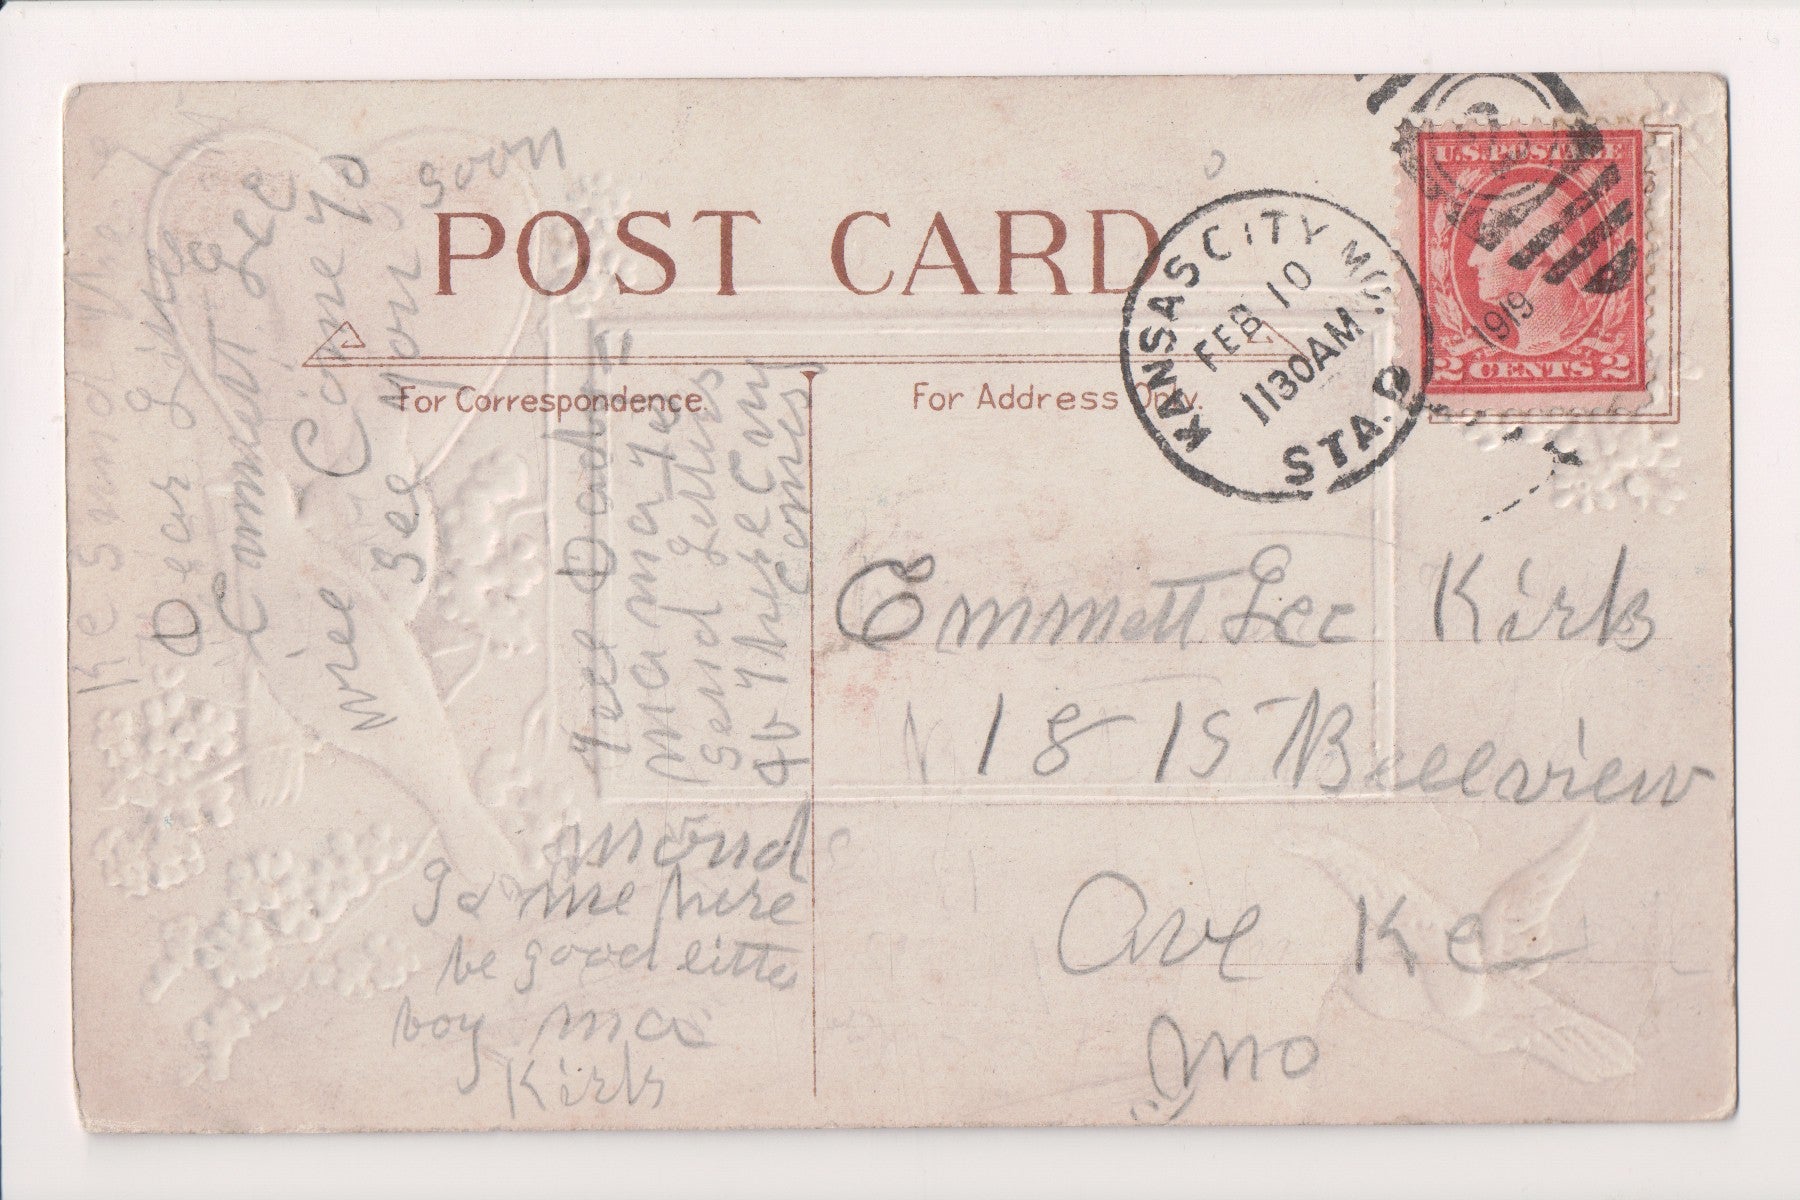 POST CARD
For Correspondence.
For Address Only.
KANSAS CITY MO.
FEB 10
1130AM
1919
STA. D
U.S. POSTAGE
2 CENTS 2
Dear
Emmett Lee
wiee Come to
see you soon
Tell Dad
mama to
send letters
here
mond
me here
be good little
boy ma
Kirk
Emmett Lee Kirk
1815 Bellview
Ave K C
Mo